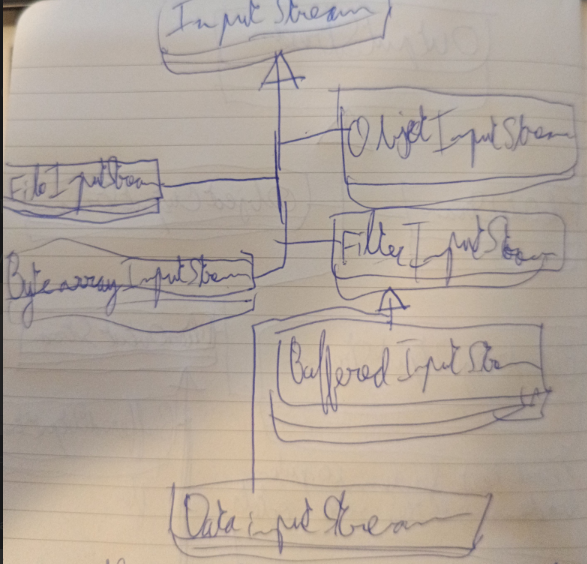 Input Stream
Objet InputStream
File InputStream
Filter InputStream
Byte array InputStream
Buffered InputStream
Data input Stream